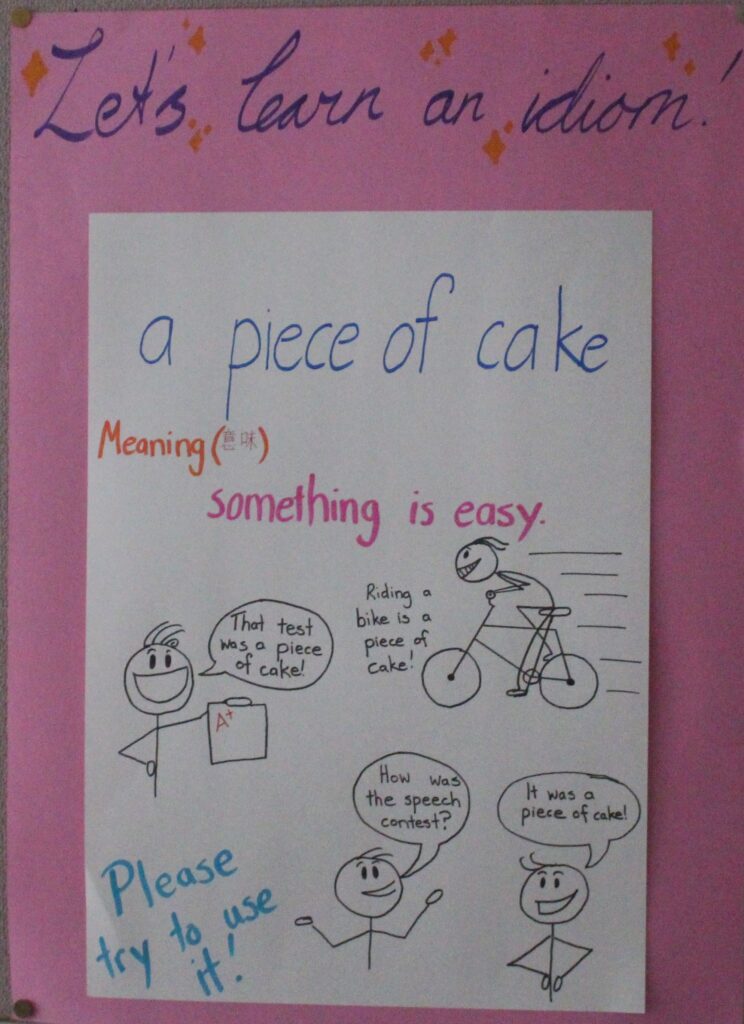 Let's learn an idiom!
a piece of cake
Meaning (意味)
something is easy.
That test
was a piece
of cake!
A+
Riding a
bike is a
piece of
cake!
How was
the speech
contest?
It was a
piece of cake!
Please
try to use
it!